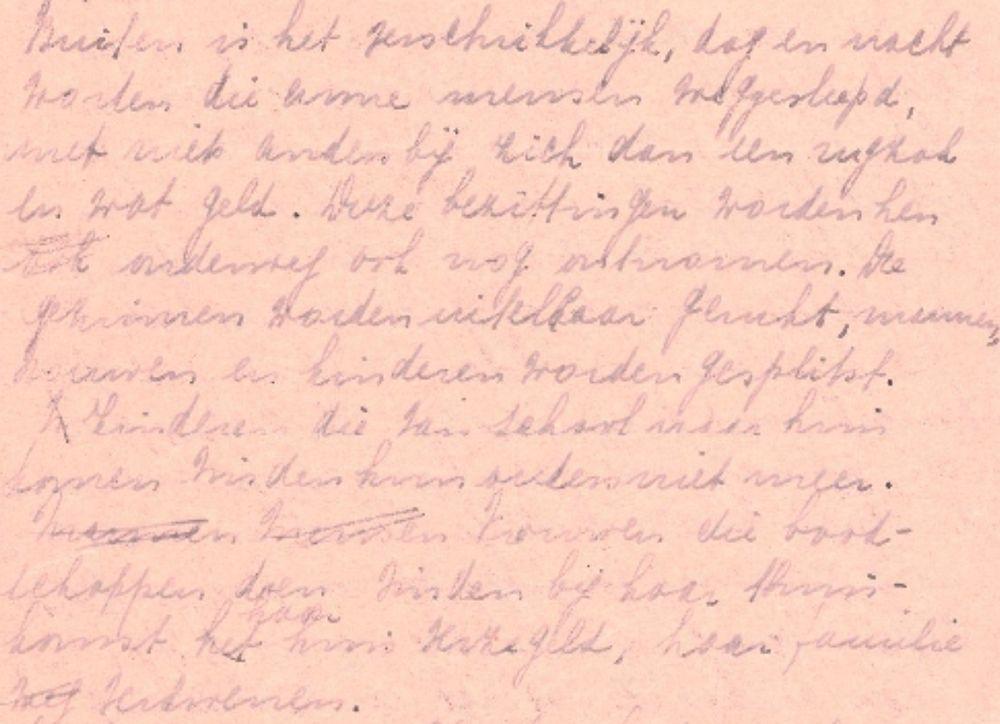 Buiten is het verschrikkelijk, dag en nacht
worden die arme mensen weggesleept,
met niets anders bij zich dan een rugzak
en wat geld. Deze bezittingen worden hen
onderweg ook nog ontnomen. De
gezinnen worden uit elkaar gerukt, mannen,
vrouwen en kinderen worden gesplitst.
Kinderen die van school naar huis
komen vinden hun ouders niet meer.
Vrouwen die bood-
schappen doen vinden bij haar thuis-
komst het huis verzegeld, haar familie
haar
weg verdwenen.